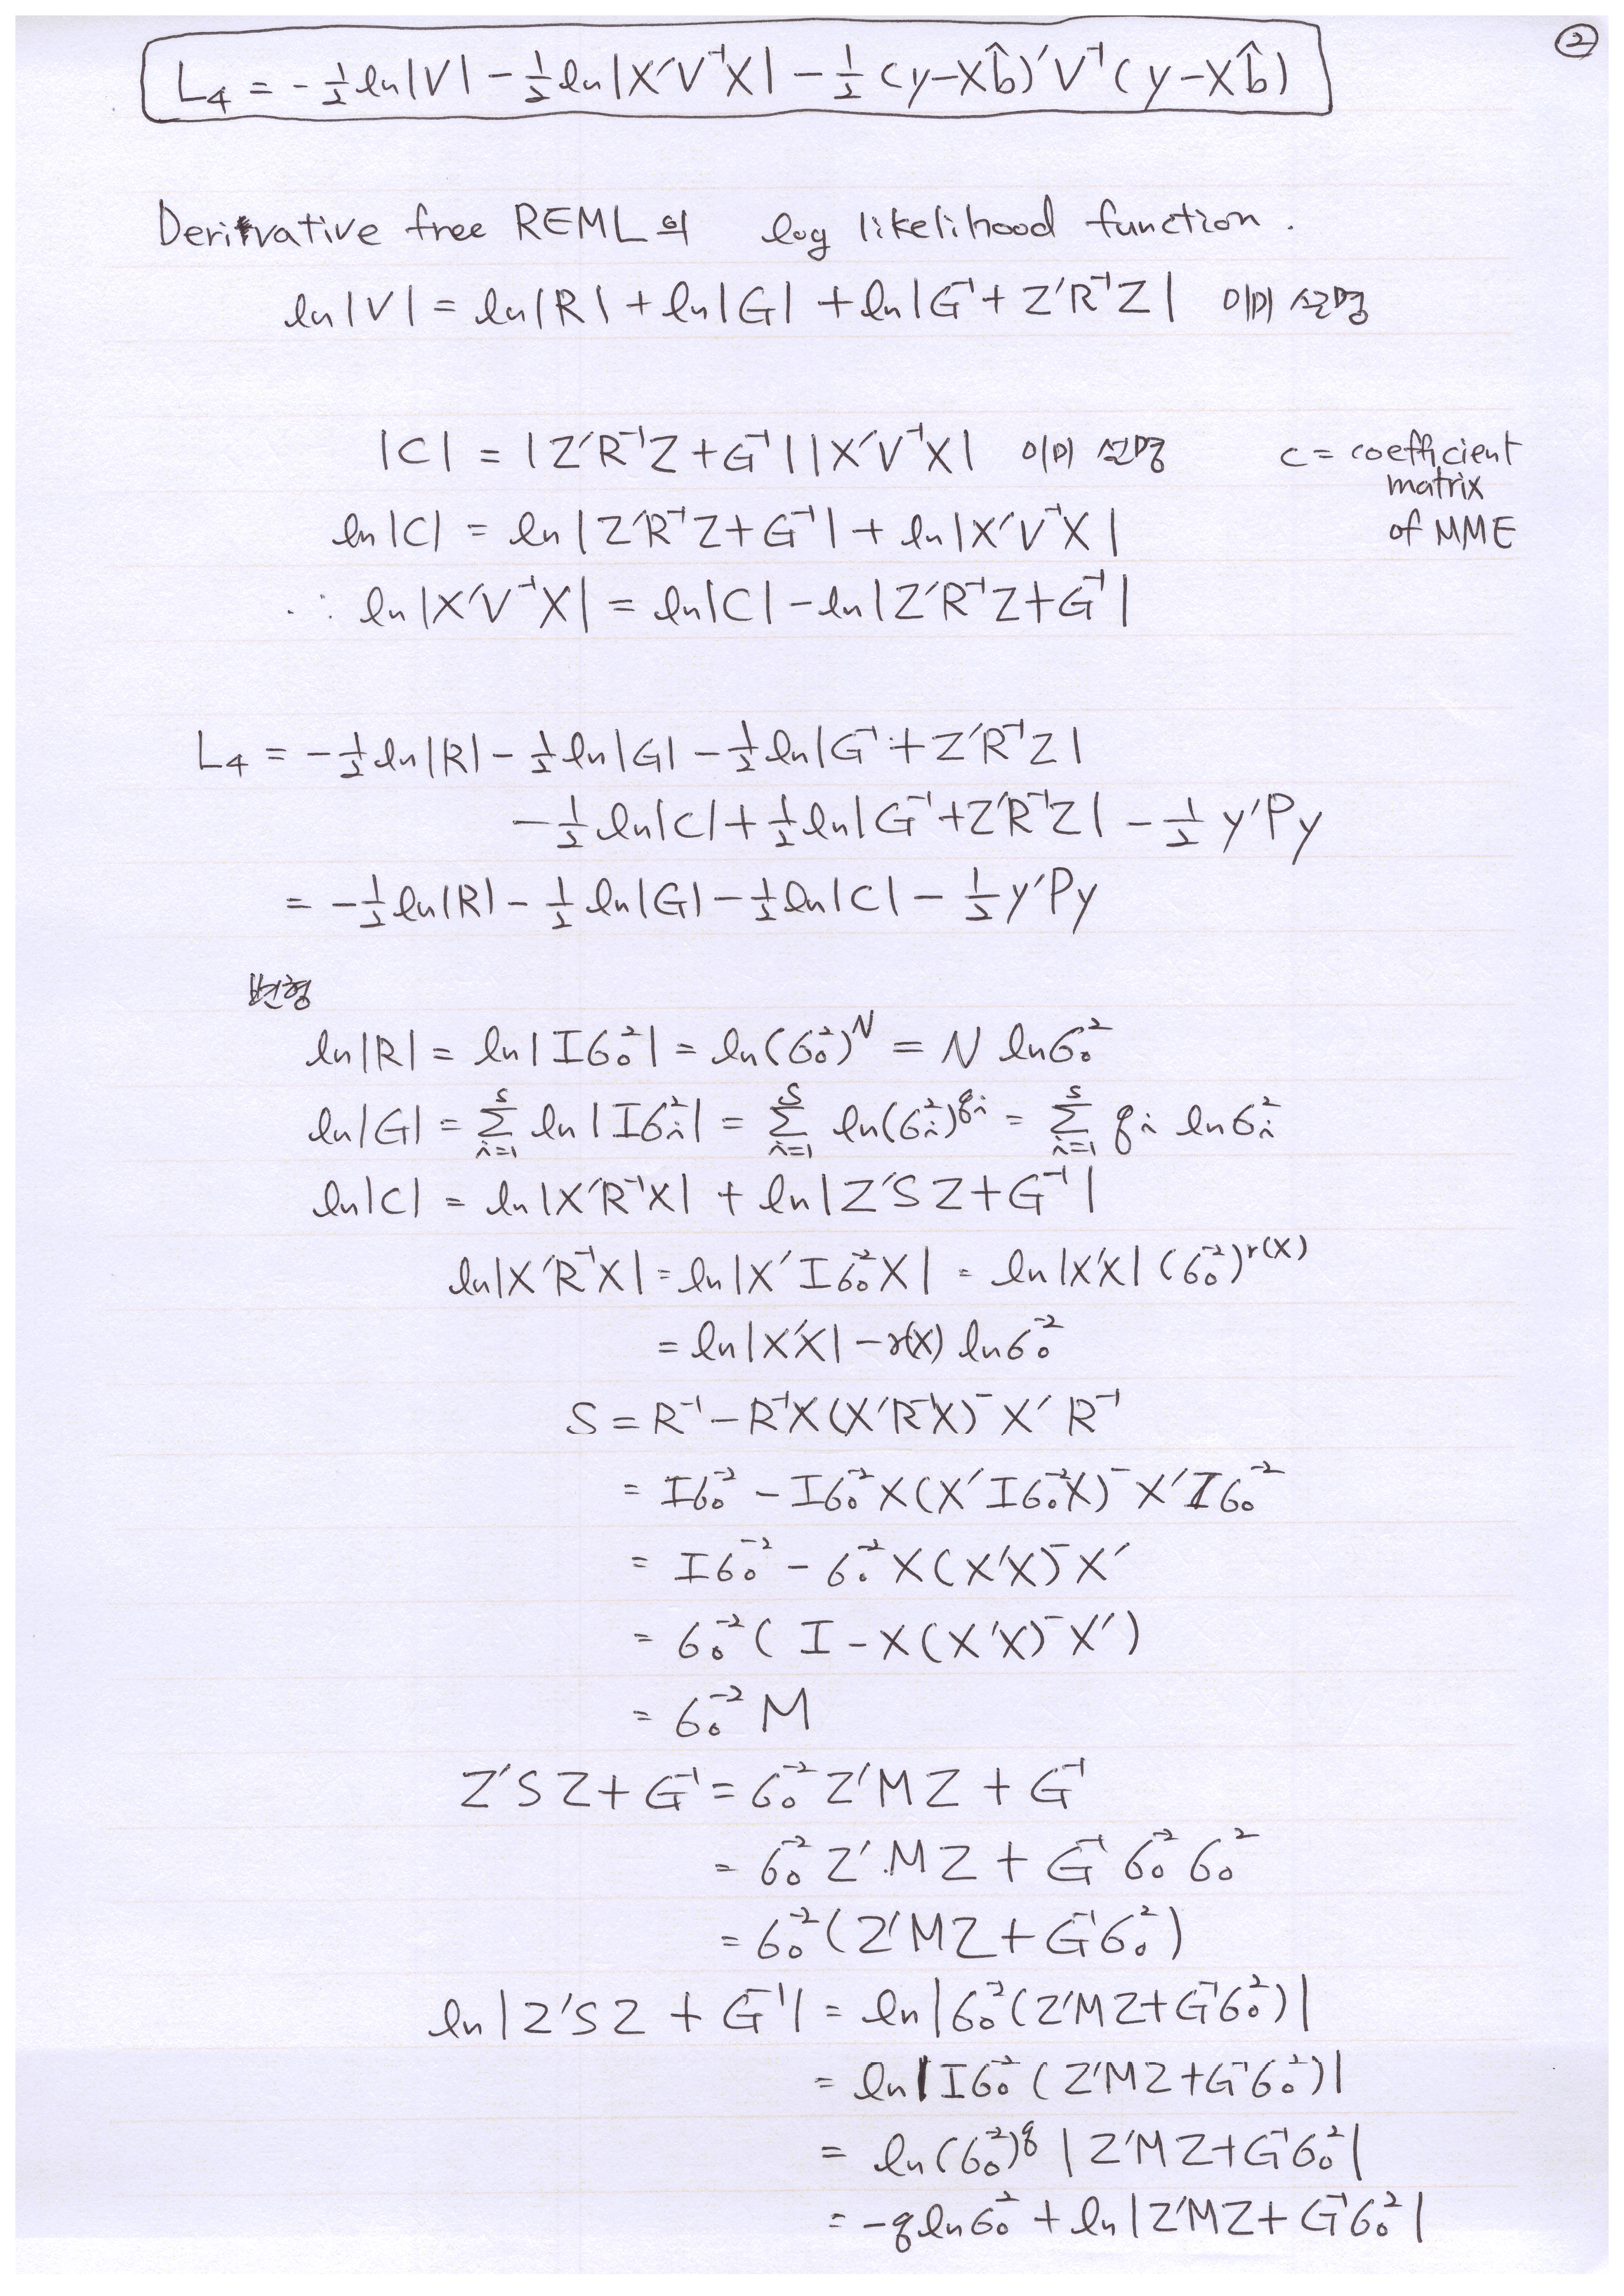 ②
L₄ = -½ ln|V| - ½ ln|X′V⁻¹X| - ½ (y-Xb̂)′V⁻¹(y-Xb̂)
Derivative free REML의 log likelihood function.
ln|V| = ln|R| + ln|G| + ln|G⁻¹ + Z′R⁻¹Z| 이미 설명
|C| = |Z′R⁻¹Z + G⁻¹||X′V⁻¹X| 이미 설명
c = coefficient
matrix
of MME
ln|C| = ln|Z′R⁻¹Z + G⁻¹| + ln|X′V⁻¹X|
∴ ln|X′V⁻¹X| = ln|C| - ln|Z′R⁻¹Z + G⁻¹|
L₄ = -½ ln|R| - ½ ln|G| - ½ ln|G⁻¹ + Z′R⁻¹Z|
-½ ln|C| + ½ ln|G⁻¹ + Z′R⁻¹Z| - ½ y′Py
= -½ ln|R| - ½ ln|G| - ½ ln|C| - ½ y′Py
변형
ln|R| = ln|Iσ₀²| = ln(σ₀²)ᴺ = N lnσ₀²
ln|G| = Σᵢ₌₁ˢ ln|Iσᵢ²| = Σᵢ₌₁ˢ ln(σᵢ²)^qᵢ = Σᵢ₌₁ˢ qᵢ lnσᵢ²
ln|C| = ln|X′R⁻¹X| + ln|Z′SZ + G⁻¹|
ln|X′R⁻¹X| = ln|X′Iσ₀⁻²X| = ln|X′X|(σ₀⁻²)^r(X)
= ln|X′X| - r(X) lnσ₀⁻²
S = R⁻¹ - R⁻¹X(X′R⁻¹X)⁻X′R⁻¹
= Iσ₀⁻² - Iσ₀⁻²X(X′Iσ₀⁻²X)⁻X′Iσ₀⁻²
= Iσ₀⁻² - σ₀⁻²X(X′X)⁻X′
= σ₀⁻²(I - X(X′X)⁻X′)
= σ₀⁻²M
Z′SZ + G⁻¹ = σ₀⁻²Z′MZ + G⁻¹
= σ₀⁻²Z′MZ + G⁻¹σ₀⁻²σ₀²
= σ₀⁻²(Z′MZ + G⁻¹σ₀²)
ln|Z′SZ + G⁻¹| = ln|σ₀⁻²(Z′MZ + G⁻¹σ₀²)|
= ln|Iσ₀⁻²(Z′MZ + G⁻¹σ₀²)|
= ln(σ₀⁻²)^q |Z′MZ + G⁻¹σ₀²|
= -q lnσ₀² + ln|Z′MZ + G⁻¹σ₀²|